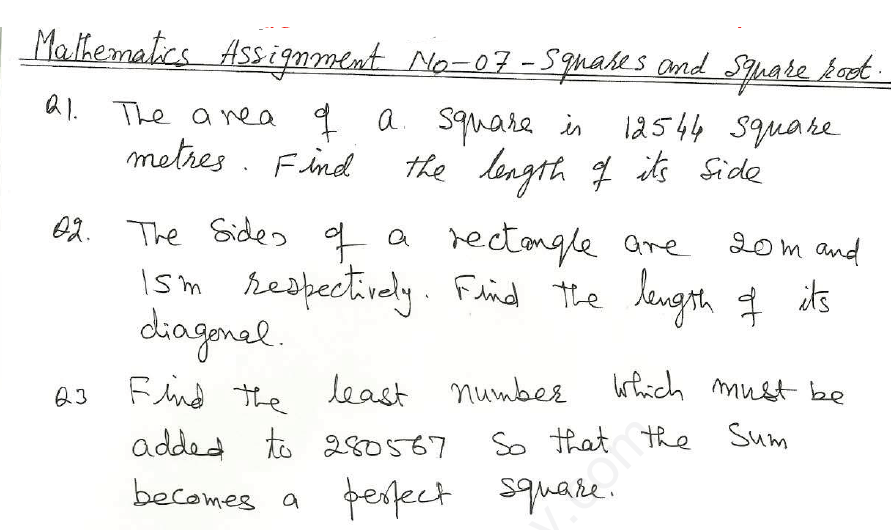 Mathematics Assignment No-07-Squares and Square root.
Q1. The area of a square is 12544 square
metres. Find the length of its side
Q2. The Sides of a rectangle are 20m and
15m respectively. Find the length of its
diagonal.
Q3 Find the least number which must be
added to 280567 so that the Sum
becomes a perfect square.